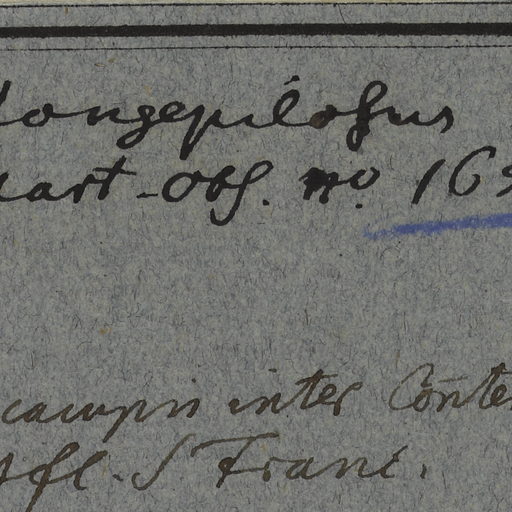 longepilosus
Mart. Obs. no. 169
campis inter Conte
fl. S Franc.